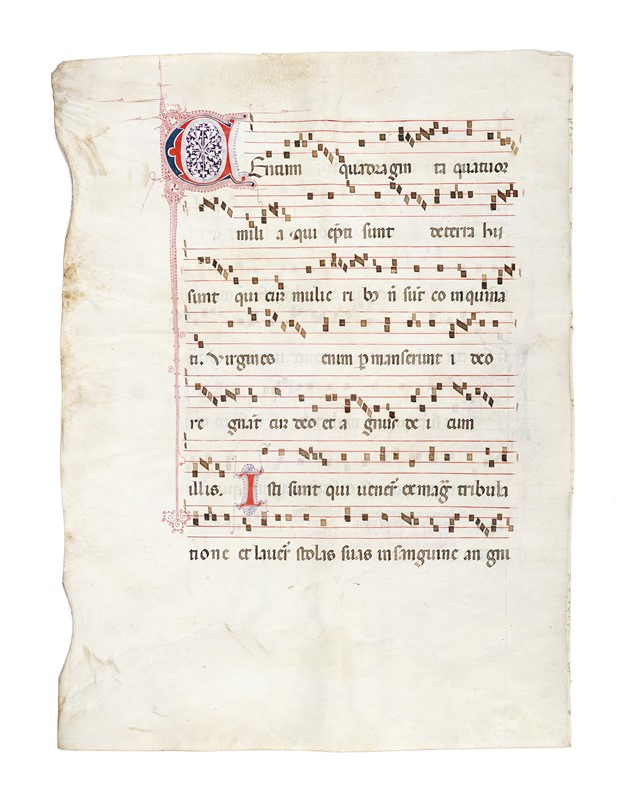 Centum quadragin ta quatuor
mili a qui epti sunt deterra hii
sunt qui cur mulie ri bo n sut co in quina
ti. Virgines enim p manserunt i deo
re gnat cur deo et a gnus de i cum
illis. Isti sunt qui vener ex mag tribula
tione et lauer stolas suas in sanguine an gni